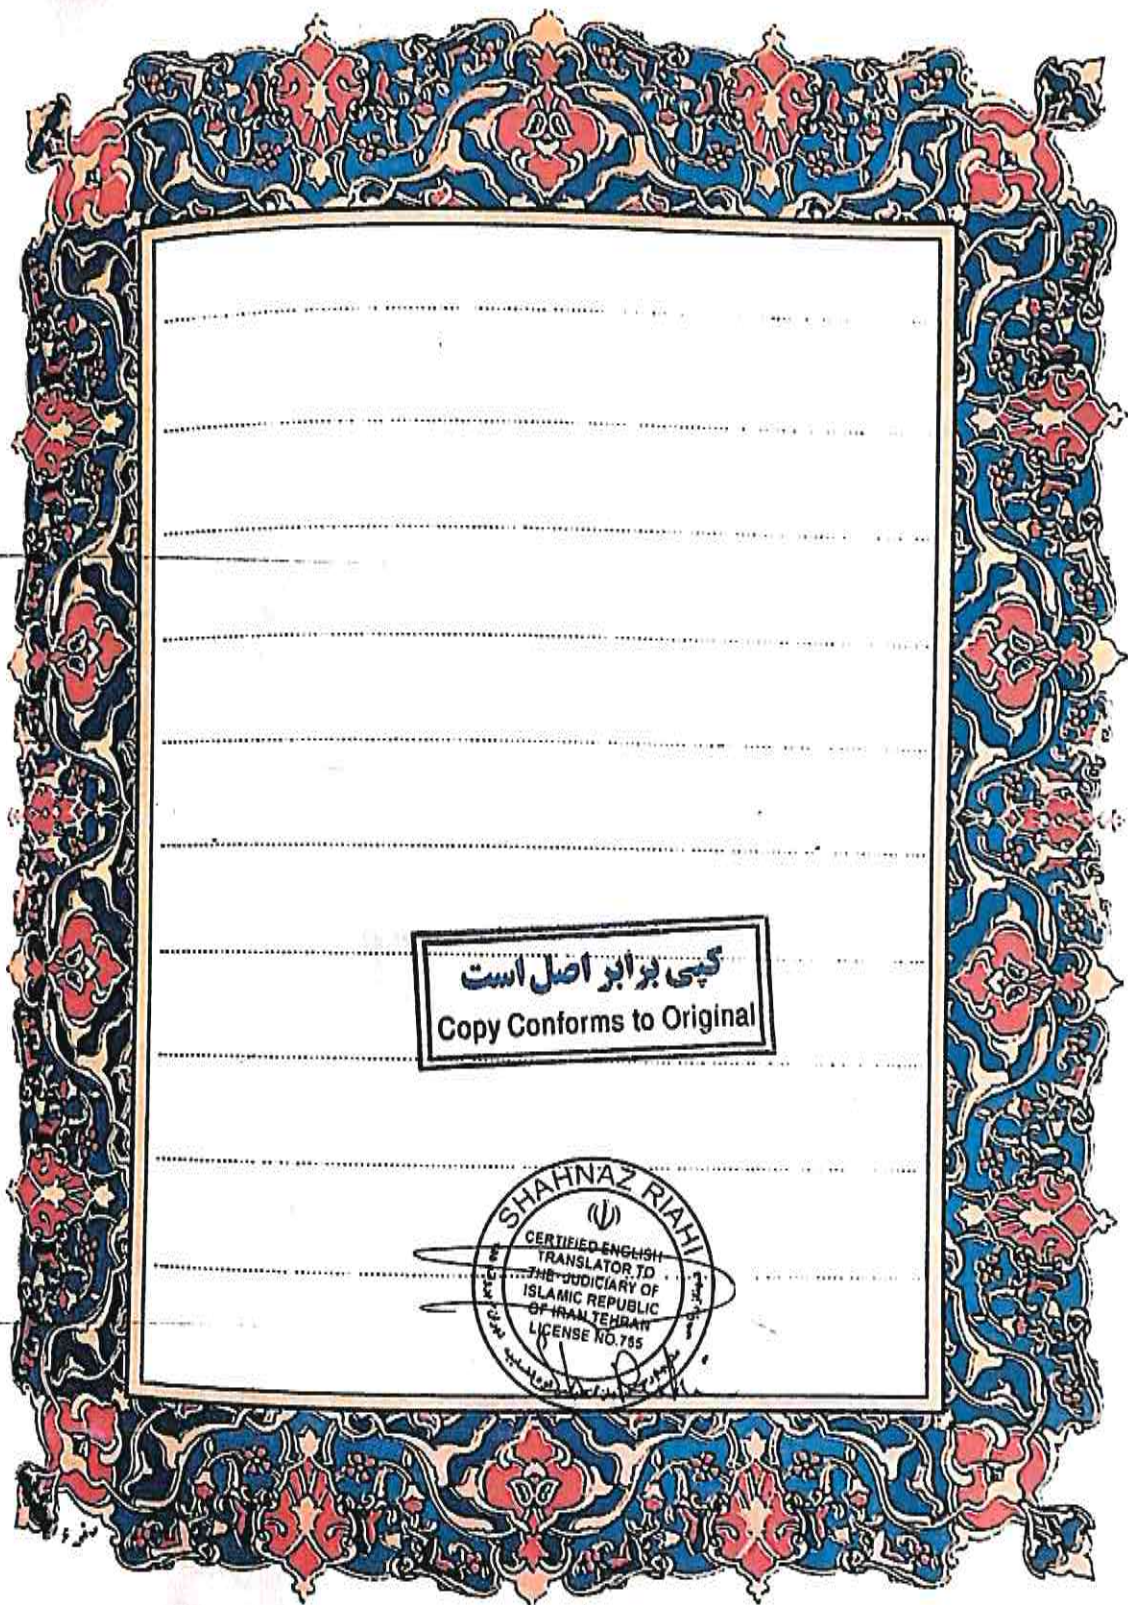 کپی برابر اصل است
Copy Conforms to Original
SHAHNAZ RIAHI
CERTIFIED ENGLISH
TRANSLATOR TO
THE JUDICIARY OF
ISLAMIC REPUBLIC
OF IRAN TEHRAN
LICENSE NO.765